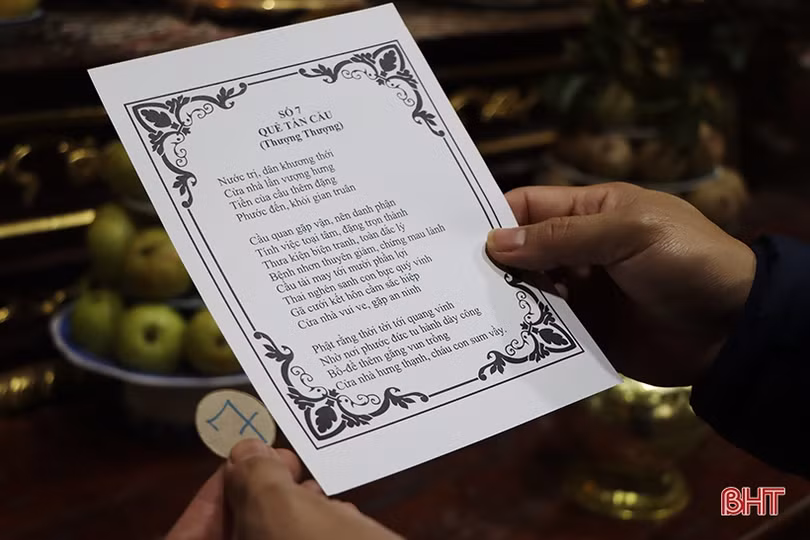 SỐ 7
QUẺ TẤN CẦU
(Thượng Thượng)
Nước trị, dân khương thới
Cửa nhà lần vượng hưng
Tiền của cầu thêm đặng
Phước đến, khỏi gian truân
Cầu quan gặp vận, nên danh phận
Tính việc toại tâm, đặng trọn thành
Thưa kiện biện tranh, toàn đắc lý
Bệnh nhơn thuyên giảm, chứng mau lành
Cầu tài may tới mười phần lợi
Thai nghén sanh con bực quý vinh
Gã cưới kết hôn cầm sắc hiệp
Cửa nhà vui vẻ, gặp an ninh
Phật rằng thời tới tới quang vinh
Nhờ nơi phước đức tu hành dày công
Bồ-đề thêm gắng vun trồng
Cửa nhà hưng thạnh, cháu con sum vầy.
7
BHT